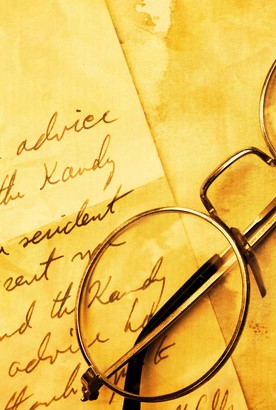 advice
the Kandy
resident
sent me
nd the Kandy
advice ha